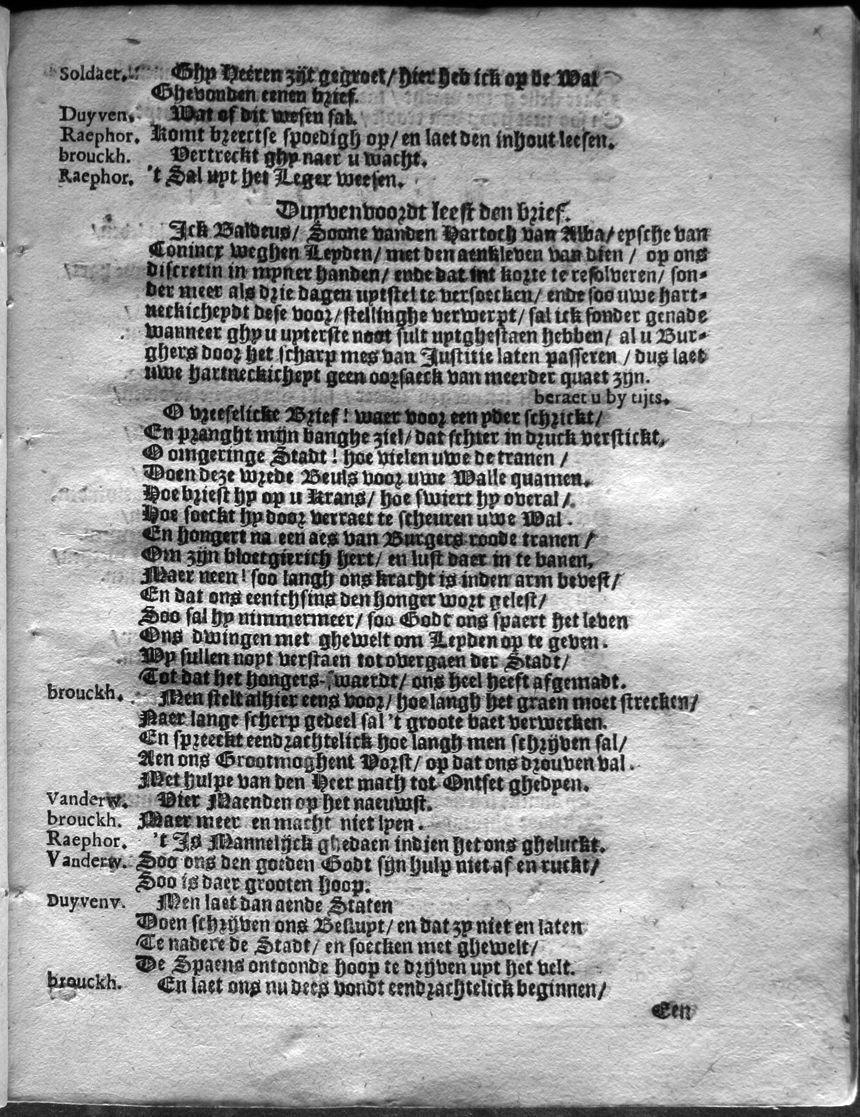 Soldaet. Ghy Heeren zijt gegroet/ hier heb ick op de Wal
Ghevonden eenen brief.
Duyven. Wat of dit wesen sal.
Raephor. Komt breectse spoedigh op/ en laet den inhout leesen.
brouckh. Vertreckt ghy naer u wacht.
Raephor. 't Sal uyt het Leger weesen.
Duyvenvoordt leest den brief.
Ick Baldeus/ Soone vanden Hartoch van Alba/ eysche van
Conincx weghen Leyden/ met den aenkleven van dien / op ons
discretin in mijner handen/ ende dat int korte te resolveren/ son-
der meer als drie dagen uytstel te versoecken/ ende soo uwe hart-
neckicheydt dese voor/stellinghe verwerpt/ sal ick sonder genade
wanneer ghy u uyterste noot sult uytghestaen hebben/ al u Bur-
ghers door het scharp mes van Justitie laten passeren / dus laet
uwe hartneckicheyt geen oorsaeck van meerder quaet zijn.
beraet u by tijts.
O vreeselicke Brief! waer voor een yder schrickt/
En pranght mijn banghe ziel/ dat schier in druck verstickt,
O omgeringe Stadt! hoe vielen uwe de tranen /
Doen deze wrede Beuls voor uwe Walle quamen.
Hoe briest hy op u Krans/ hoe swiert hy overal /
Hoe soeckt hy door verraet te scheuren uwe Wal.
En hongert na een aes van Burgers roode tranen /
Om zijn bloetgierich hert/ en lust daer in te banen,
Maer neen! soo langh ons kracht is inden arm bevest/
En dat ons eenichsins den honger wort gelest/
Soo sal hy nimmermeer/ soo Godt ons spaert het leven
Ons dwingen met ghewelt om Leyden op te geven.
Wy sullen noyt verstaen tot overgaen der Stadt/
Tot dat het hongers-swaerdt/ ons heel heeft afgemadt.
brouckh. Men stelt alhier eens voor/ hoe langh het graen moet strecken/
Naer lange scherp gedeel sal 't groote baet verwecken.
En spreeckt eendrachtelick hoe langh men schrijven sal/
Aen ons Grootmoghent Vorst/ op dat ons drouven val.
Met hulpe van den Heer mach tot Ontset ghedyen.
Vanderw. Vier Maenden op het naeuwst.
brouckh. Maer meer en macht niet lyen.
Raephor. 't Is Mannelijck ghedaen indien het ons gheluckt.
Vanderw. Soo ons den goeden Godt sijn hulp niet af en ruckt/
Soo is daer grooten hoop.
Duyvenv. Men laet dan aende Staten
Doen schrijven ons Besluyt/ en dat zy niet en laten
Te nadere de Stadt/ en soecken met ghewelt/
De Spaens ontoonde hoop te drijven uyt het velt.
brouckh. En laet ons nu dees vondt eendrachtelick beginnen/
Een